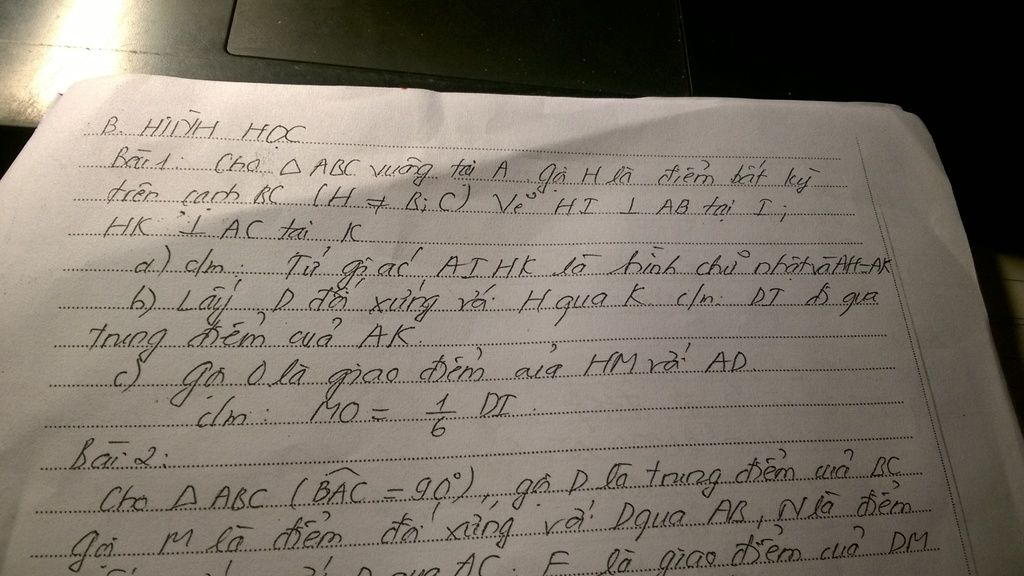 B. HÌNH HỌC
Bài 1: Cho △ ABC vuông tại A gọi H là điểm bất kỳ
trên cạnh BC (H ≠ B; C) Vẽ HI ⊥ AB tại I;
HK ⊥ AC tại K
a) c/m: Tứ giác AIHK là hình chữ nhật và AH=AK
b) Lấy D đối xứng với H qua K c/m: DI đi qua
trung điểm của AK.
c) Gọi O là giao điểm của HM với AD
c/m: MO = 1/6 DI.
Bài 2:
Cho △ ABC (BAC = 90°), gọi D là trung điểm của BC
Gọi M là điểm đối xứng với D qua AB, N là điểm
D qua AC. E là giao điểm của DM